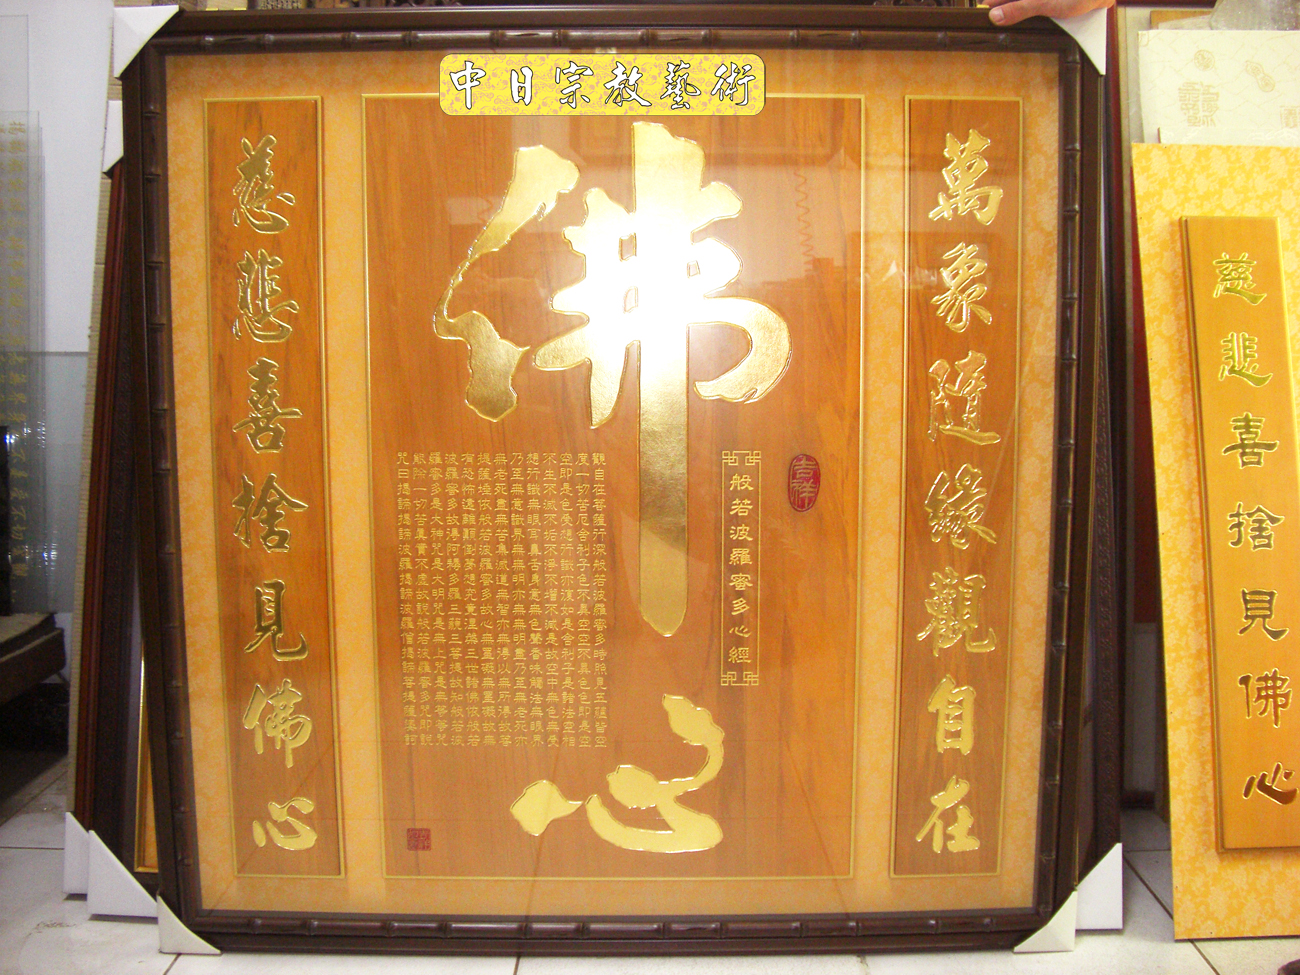 中日宗教藝術
萬象隨緣觀自在
佛心
吉祥
般若波羅蜜多心經
觀自在菩薩行深般若波羅蜜多時照見五蘊皆空
度一切苦厄舍利子色不異空空不異色色即是空
空即是色受想行識亦復如是舍利子是諸法空相
不生不滅不垢不淨不增不減是故空中無色無受
想行識無眼耳鼻舌身意無色聲香味觸法無眼界
乃至無意識界無無明亦無無明盡乃至無老死亦
無老死盡無苦集滅道無智亦無得以無所得故菩
提薩埵依般若波羅蜜多故心無罣礙無罣礙故無
有恐怖遠離顛倒夢想究竟涅槃三世諸佛依般若
波羅蜜多故得阿耨多羅三藐三菩提故知般若波
羅蜜多是大神咒是大明咒是無上咒是無等等咒
能除一切苦真實不虛故說般若波羅蜜多咒即說
咒曰揭諦揭諦波羅揭諦波羅僧揭諦菩提薩婆訶
慈悲喜捨見佛心
慈悲喜捨見佛心